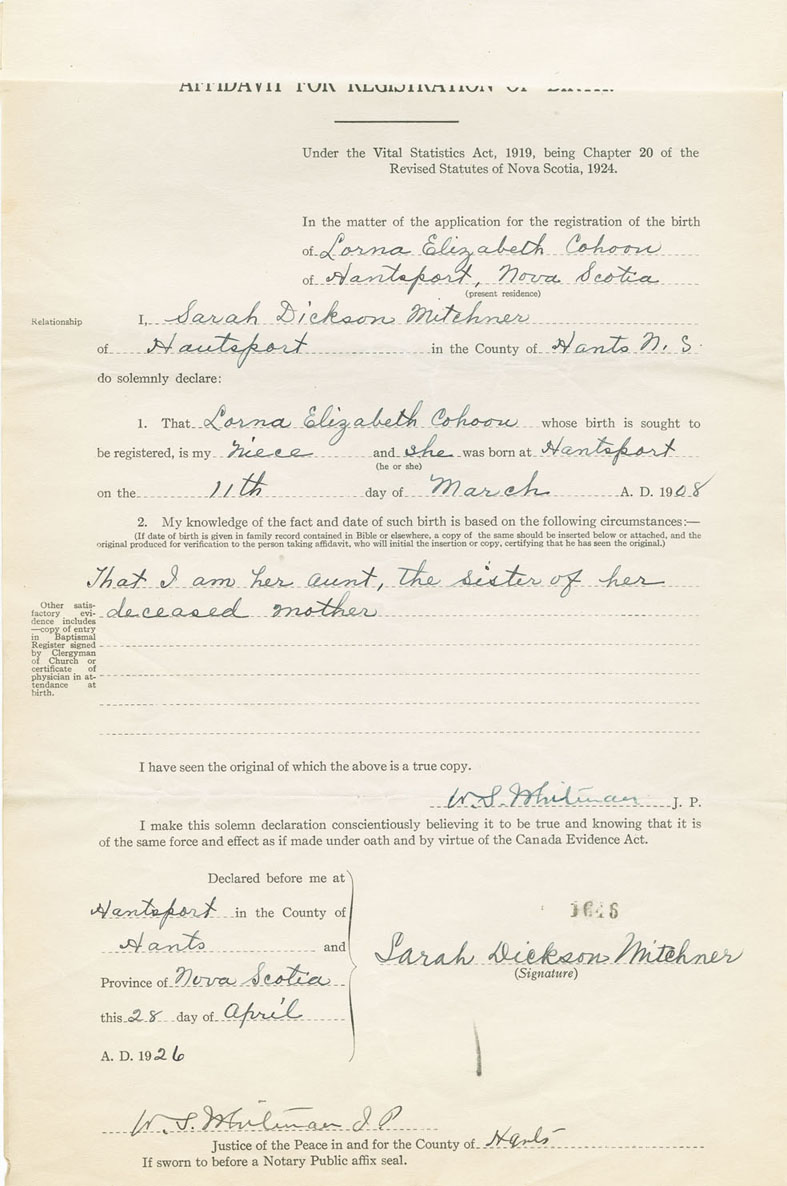 AFFIDAVIT FOR REGISTRATION OF BIRTH
Under the Vital Statistics Act, 1919, being Chapter 20 of the
Revised Statutes of Nova Scotia, 1924.
In the matter of the application for the registration of the birth
of Lorna Elizabeth Cohoon
of Hantsport, Nova Scotia
(present residence)
Relationship
I, Sarah Dickson Mitchner
of Hantsport in the County of Hants N. S.
do solemnly declare:
1. That Lorna Elizabeth Cohoon whose birth is sought to
be registered, is my niece and she was born at Hantsport
(he or she)
on the 11th day of March A. D. 1908
2. My knowledge of the fact and date of such birth is based on the following circumstances:—
(If date of birth is given in family record contained in Bible or elsewhere, a copy of the same should be inserted below or attached, and the
original produced for verification to the person taking affidavit, who will initial the insertion or copy, certifying that he has seen the original.)
That I am her aunt, the sister of her
deceased mother
Other satis-
factory evi-
dence includes
—copy of entry
in Baptismal
Register signed
by Clergyman
of Church or
certificate of
physician in at-
tendance at
birth.
I have seen the original of which the above is a true copy.
W. S. Whitman J. P.
I make this solemn declaration conscientiously believing it to be true and knowing that it is
of the same force and effect as if made under oath and by virtue of the Canada Evidence Act.
Declared before me at
Hantsport in the County of
Hants and
Province of Nova Scotia
this 28 day of April
A. D. 1926
Sarah Dickson Mitchner
(Signature)
W. S. Whitman J P
Justice of the Peace in and for the County of Hants
If sworn to before a Notary Public affix seal.